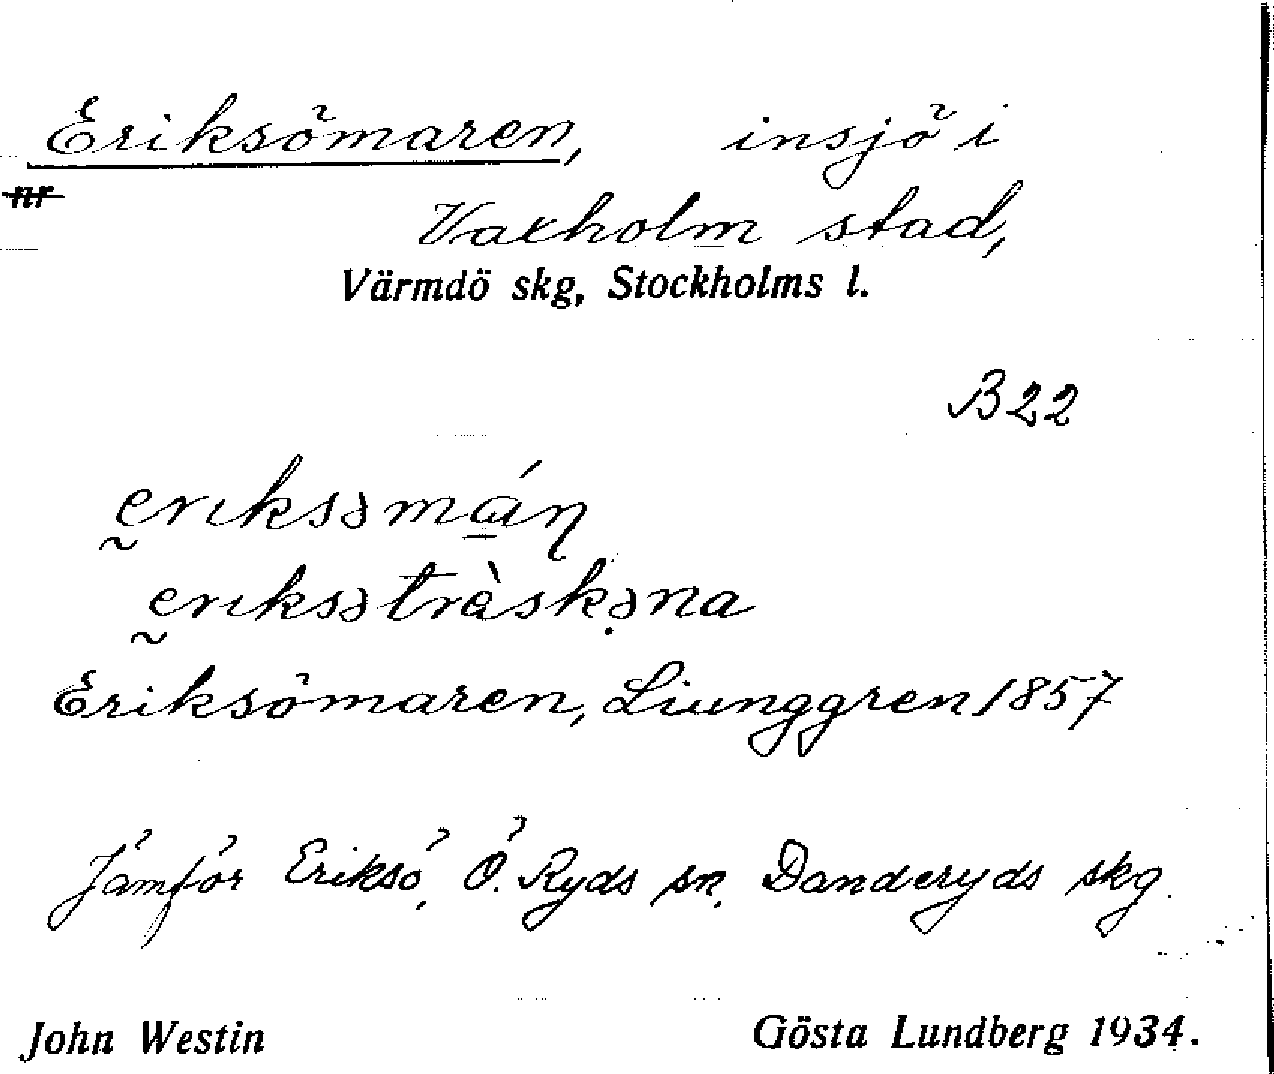 Eriksömaren, insjö i
nr
Vaxholm stad,
Värmdö skg, Stockholms l.
B22
eriksəmán
eriksəträ̀skəna
Eriksömaren, Liunggren 1857
Jämför Eriksö, Ö. Ryds sn, Danderyds skg.
John Westin Gösta Lundberg 1934.